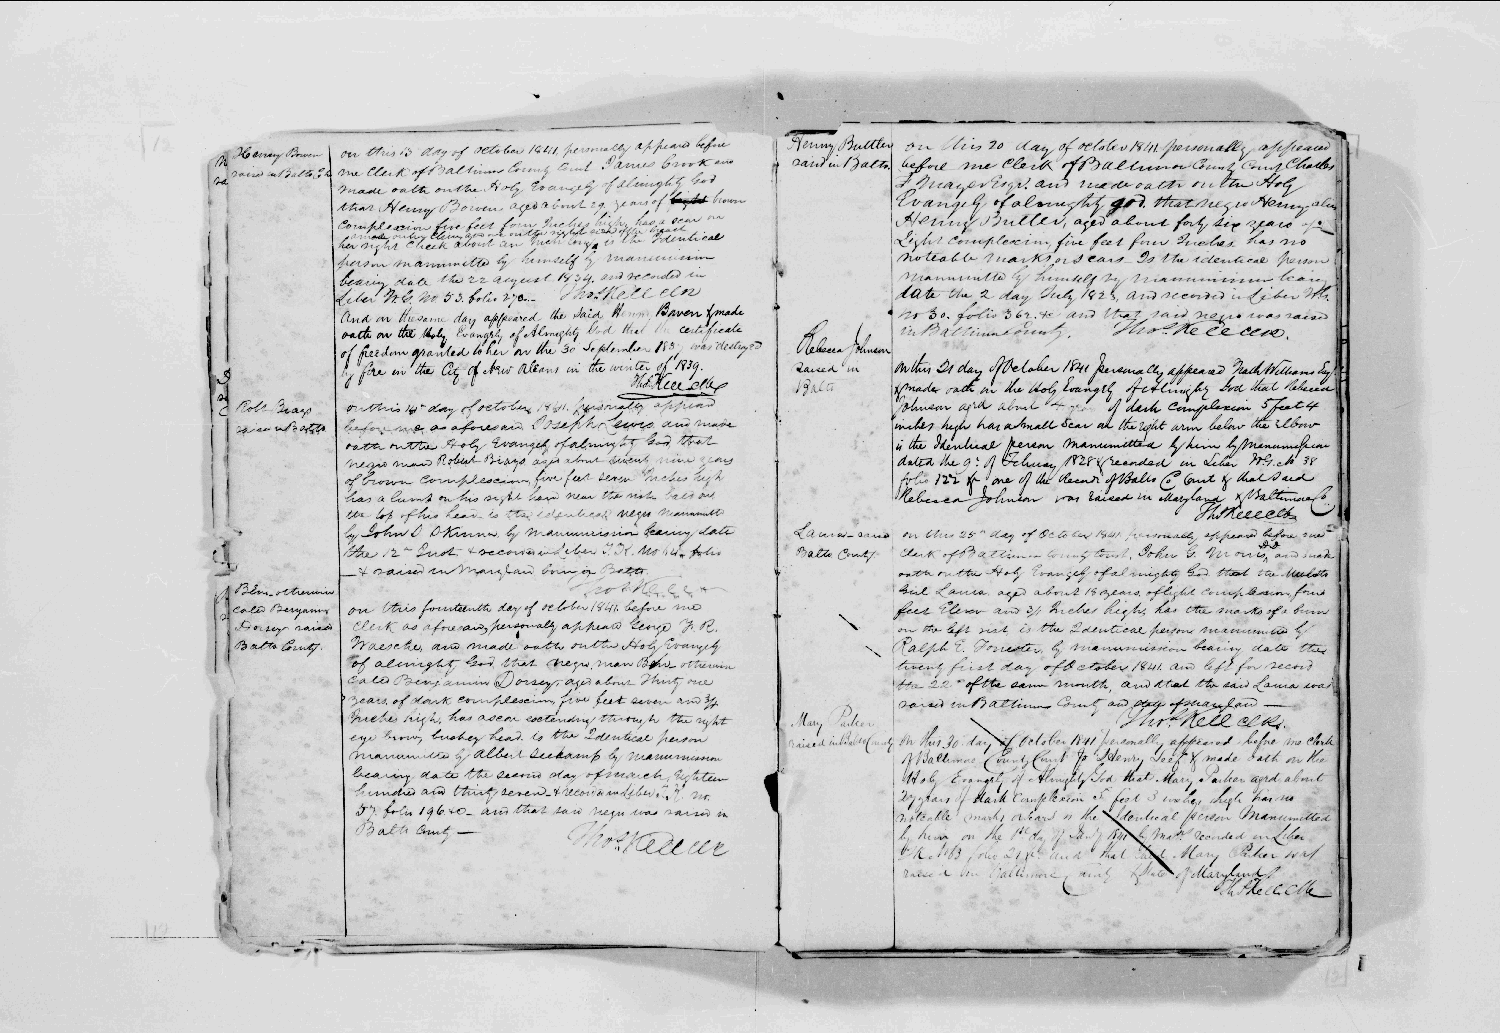 Henny Bowen
raised in Balto.
on this 13 day of october 1841 personally appeared before
me Clerk of Baltimore County Court James Crook and
made oath on the Holy Evangely of almighty God
that Henny Bowen aged about 29 years of light brown
Complexion five feet four Inches high, has a scar on
her right Cheek about an Inch long is the Identical
person manumitted by himself by manumission
bearing date the 22 august 1834 and recorded in
Liber W.G. No 53. folio
Thos Kell Clk
And on the same day appeared the said Henny Bowen & made
oath on the Holy Evangely of Almighty God that the certificate
of freedom granted to her on the 30 September 183 was destroyed
by fire in the City of New Orleans in the winter of 1839.
Thos Kell Clk
Robt Briags
raised in Balto
on this 14th day of october 1841. personally appeared
before me as aforesaid Joseph Lewis and made
oath on the Holy Evangely of almighty God that
negro man Robert Briags aged about twenty nine years
of brown complexion, five feet seven Inches high
has a lump on his right hand near the bald on
the top of his head is the identical negro manumitted
by John D Skinner by manumission bearing date
the 12th Inst. & recorded in Liber T.K. No folio
& raised in Maryland Balto.
Thos Kell Clk
Ben otherwise
Cald Benjamin
Dorsey raised
Balto County.
on this fourteenth day of october 1841 before me
Clerk as aforesaid, personally appeared George F. R.
Waesche, and made oath on the Holy Evangely
of almighty God that negro man Ben otherwise
Cald Benjamin Dorsey aged about thirty one
years, of dark complexion, five feet seven and 3/4
Inches high, has a scar extending through the right
eye brow, bushey head is the Identical person
manumitted by Albert Seekamp by manumission
bearing date the second day of march, Eighteen
hundred and thirty seven & recorded in Liber T.K. no.
57. folio 196 &c and that said negro was raised in
Balto County
Thos Kell Clk
Henny Buttler
raised in Balto.
on this 20 day of october 1841 personally appeared
before me Clerk of Baltimore County Court Charles
F Mayer Esqr. and made oath on the Holy
Evangely of almighty god. that negro Henny alias
Henny Butler, aged about forty six years of
Light complexion, five feet four Inches, has no
noteable marks or scars Is the identical person
manumitted by himself by manumission bearing
date the 2 day July 1823, and recorded in Liber
no 30. folio 362 &c and that said negro was raised
in Baltimore County.
Thos Kell Clk.
Rebecca Johnson
raised in
Balto
On this 21 day of October 1841 Personally appeared Williams Esqr
& made oath on the Holy Evangely of Almighty God that Rebecca
Johnson aged about years of dark complexion 5 feet 4
inches high has a small Scar on the right arm below the Elbow
is the Identical person manumitted by him by Manumission
dated the 9th of February 1828 & recorded in Liber W.G. No 38
folio 122 &c one of the records of Balto Co Court & that Said
Rebecca Johnson was raised in Maryland & Baltimore Co.
Thos Kell Clk
Laura raised
Balto County
on this 25th day of October 1841 personally appeared before me
Clerk of Baltimore County Court, John G. Morris, D.D. and made
oath on the Holy Evangely of almighty God that the Mulatto
Girl Laura, aged about 18 years, of light complexion, four
feet Eleven and 3/4 Inches high, has the marks of a burn
on the left rist is the Identical person manumitted by
Ralph E. Forrester, by manumission bearing date the
twenty first day of October 1841. and left for record
the 22d of the same month, and that the said Laura was
raised in Baltimore County and State of maryland
Thos Kell Clk.
Mary Parker
raised in Balto County
On this 30 day of October 1841 personally appeared before me clerk
of Baltimore County Court Henry & made oath on the
Holy Evangely of Almighty God that Mary Parker aged about
24 years of dark complexion 5 feet 3 inches high has no
noticable marks or scars is the Identical person Manumitted
by him on the day of Jany 1841 by recorded in Liber
T.K. folio and that said Mary Parker was
raised in Baltimore County & State of Maryland
Thos Kell Clk